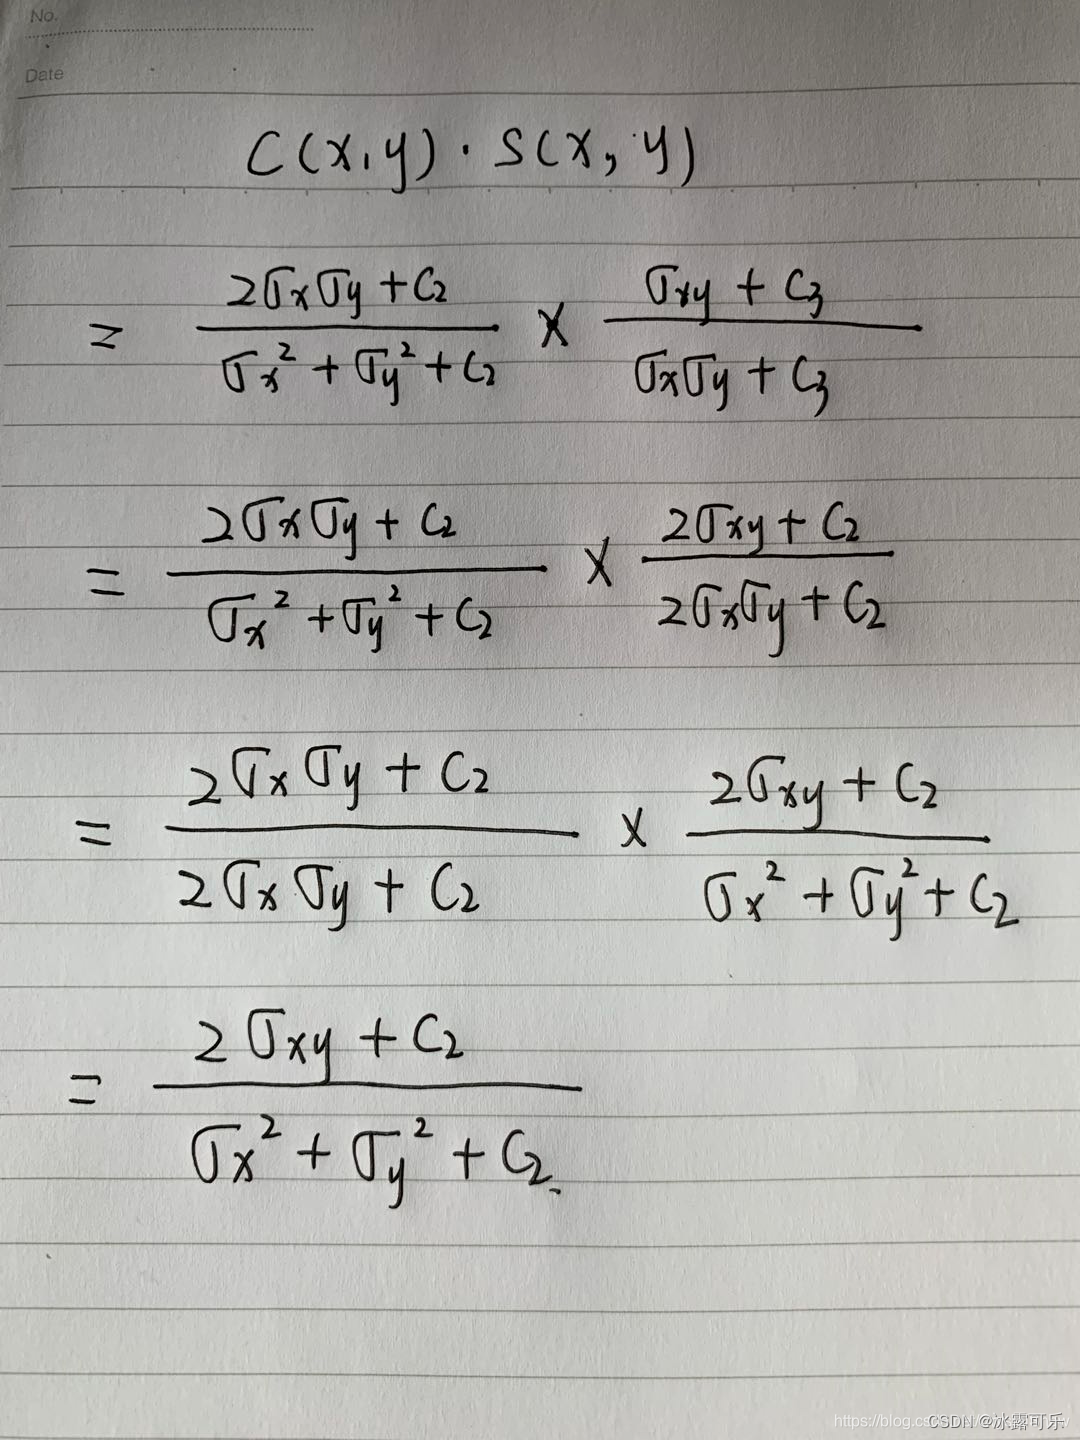 No.
Date
C(x,y)·S(x,y)
= (2σxσy+C₂)/(σx²+σy²+C₂) × (σxy+C₃)/(σxσy+C₃)
= (2σxσy+C₂)/(σx²+σy²+C₂) × (2σxy+C₂)/(2σxσy+C₂)
= (2σxσy+C₂)/(2σxσy+C₂) × (2σxy+C₂)/(σx²+σy²+C₂)
= (2σxy+C₂)/(σx²+σy²+C₂).
https://blog.cs
CSDN @冰露可乐